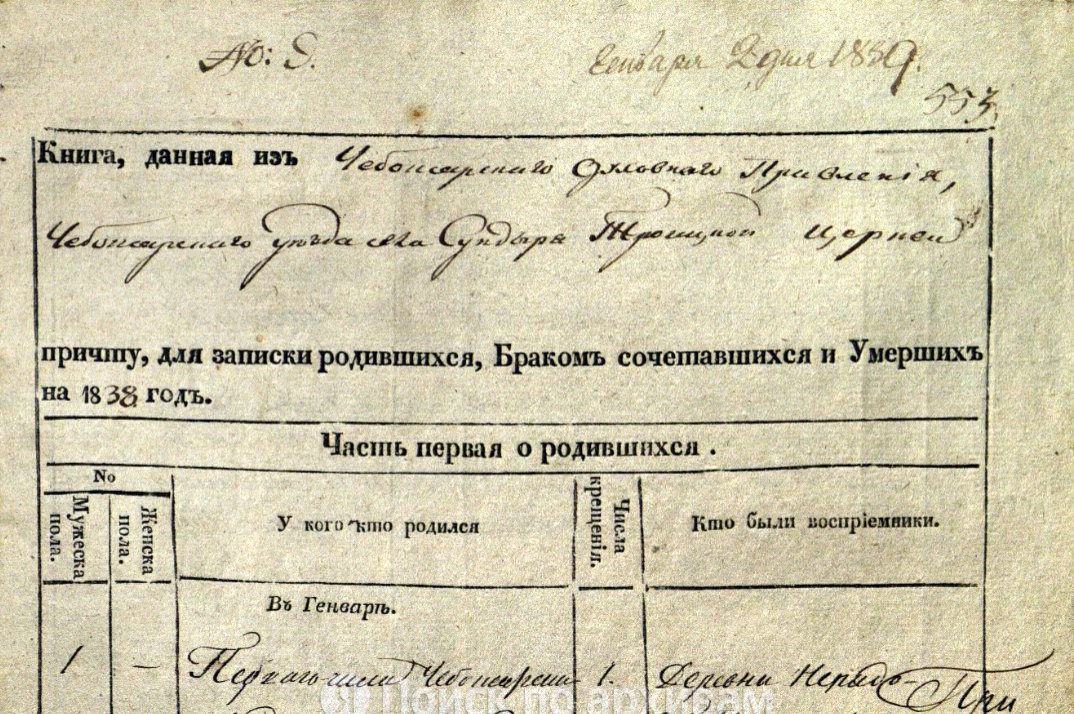 №: 9.
Генваря 2 дня 1839.
553.
Книга, данная изъ Чебоксарскаго Духовнаго Правленія,
Чебоксарскаго уѣзда села Сундыря Троицкой Церкви
причту, для записки родившихся, Бракомъ сочетавшихся и Умершихъ
на 1838 годъ.
Часть первая о родившихся.
No
Мужеска пола.
Женска пола.
У кого кто родился
Числа крещенія.
Кто были воспріемники.
Въ Генварѣ.
1 — Перваго числа Чебоксарска 1. Деревни
Поиск по архивам